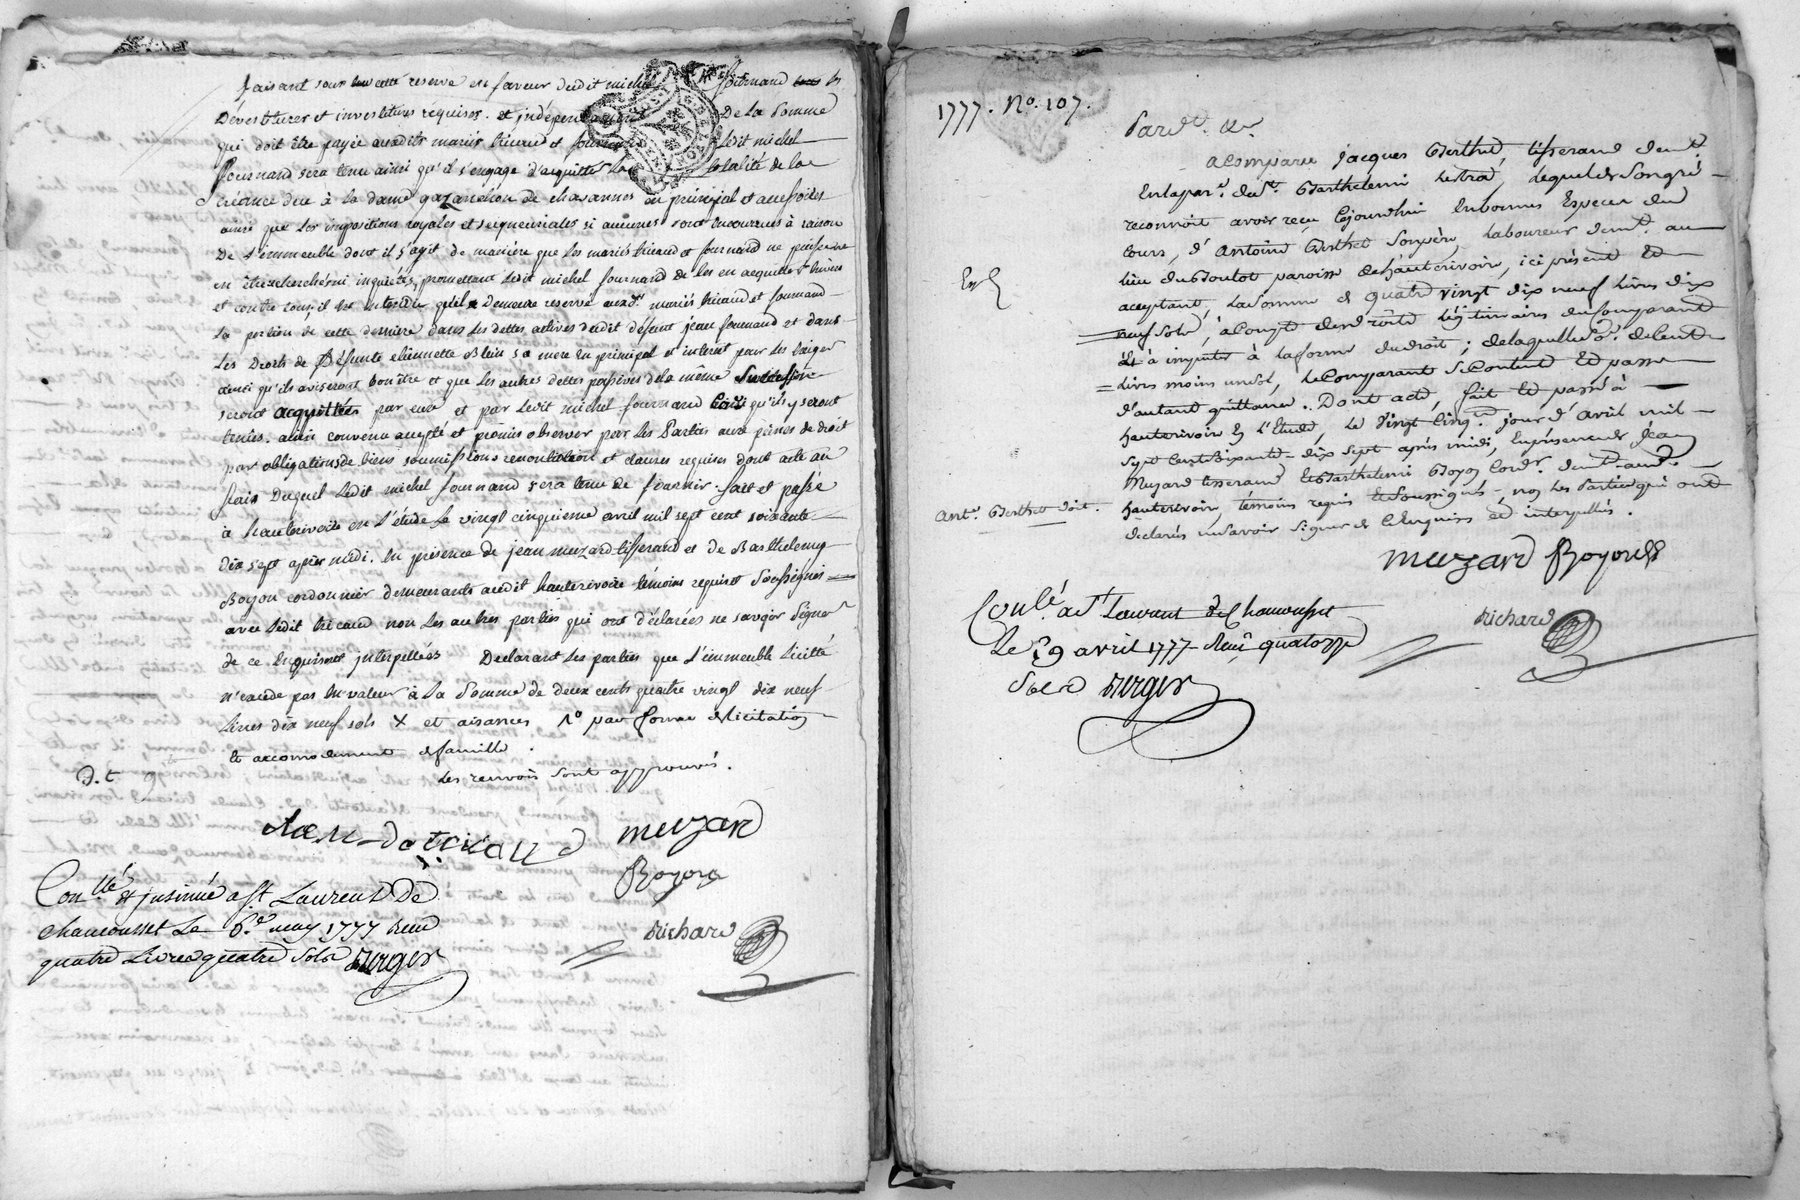 faisant sous cette reserve en faveur dudit michel fournand les
Dévestitures et investitures requises. et indépendament De la Somme
qui doit être payée auxdits mariés tricaud et fournand ledit michel
fournand sera tenu ainsi qu'il s'engage d'acquitter la totalité de la
Créance due à la dame gazanchon de chavannes en principal et accessoires
ainsi que les impositions royales et seigneuriales si aucunes sont encourues à raison
De l'immeuble dont il s'agit de manière que les mariés tricaud et fournand ne puissent
en être recherchés ni inquiétés, promettant ledit michel fournand de les en acquitter envers
et contre tous, il est entendu qu'il Demeure reservé auxd. mariés tricaud et fournand
la portion de cette dernière dans les dettes actives dudit défunt jean fournand et dans
les Droits de Défunte etiennette Blein sa mere en principal et interet pour les exiger
ainsi qu'ils aviseront bon être et que les autres dettes passives de la même Succession
seront acquittées par eux et par ledit michel fournand ainsi qu'ils y seront
tenus. ainsi convenu accepté et promis observer par les Parties aux peines de droit
par obligations de biens soumissions renonciation et clauses requises dont acte au
frais Duquel ledit michel fournand sera tenu de fournir. fait et passé
à hauterivoire en l'étude le vingt cinquieme avril mil sept cent soixante
dix sept après midi. en présence de jean muzard tisserand et de Barthelemy
Boyon cordonnier demeurants audit hauterivoire témoins requis et Soussignés
avec ledit tricaud non les autres parties qui ont déclarées ne savoir Signer
de ce Enquises et interpellées Declarant les parties que l'immeuble licité
n'excede pas en valeur à la Somme de deux cents quatre vingt dix neuf
livres dix neuf sols X et aisances 1º par forme de licitation
et accomodement de famille.
D. t 9
les renvois sont approuvés.
muzard
Boyon
Con.llé & insinué a St Laurent De
chamousset Le 6.e may 1777 Reçu
quatre Livres quatre Sols Berger
Richard
1777. No. 107.
Pard.t &c.
a comparu jacques Berthet, tisserand dem.t
En la par.e du St. Barthelemi Lestra, lequel de Son gré
reconnoit avoir reçu Cejourdhui En bonnes Especes du
Cours, d'Antoine Berthet Son père, Laboureur dem.t au
lieu du Boulot paroisse de hauterivoire, ici présent Et
acceptant, la Somme de quatre vingt dix neuf livres dix
neuf Sols, à Compte des droits légitimaires du Comparant
Et à imputer à la forme du droit; de laquelle So.e de Cent
livres moins un Sol, le Comparant Se Contente Et passe
d'autant quittance. Dont acte, fait Et passé à
hauterivoire En l'Etude, le Vingt Cinq.e jour d'avril mil
Sept Cent Soixante-dix Sept après midi, En présence de Jean
Muzard tisserand Et Barthelemi Boyon Cord.r dem.t aud.t
hauterivoire, témoins requis Et Soussignés, non les Parties qui ont
declarés ne Savoir Signer de Ce Enquises Et interpellés.
Exp
Ant.e Berthet doit.
muzard Boyon
Richard
Con.lé a St Laurent de Chamousset
Le 29 avril 1777 Reçu quatorze
Sols Berger